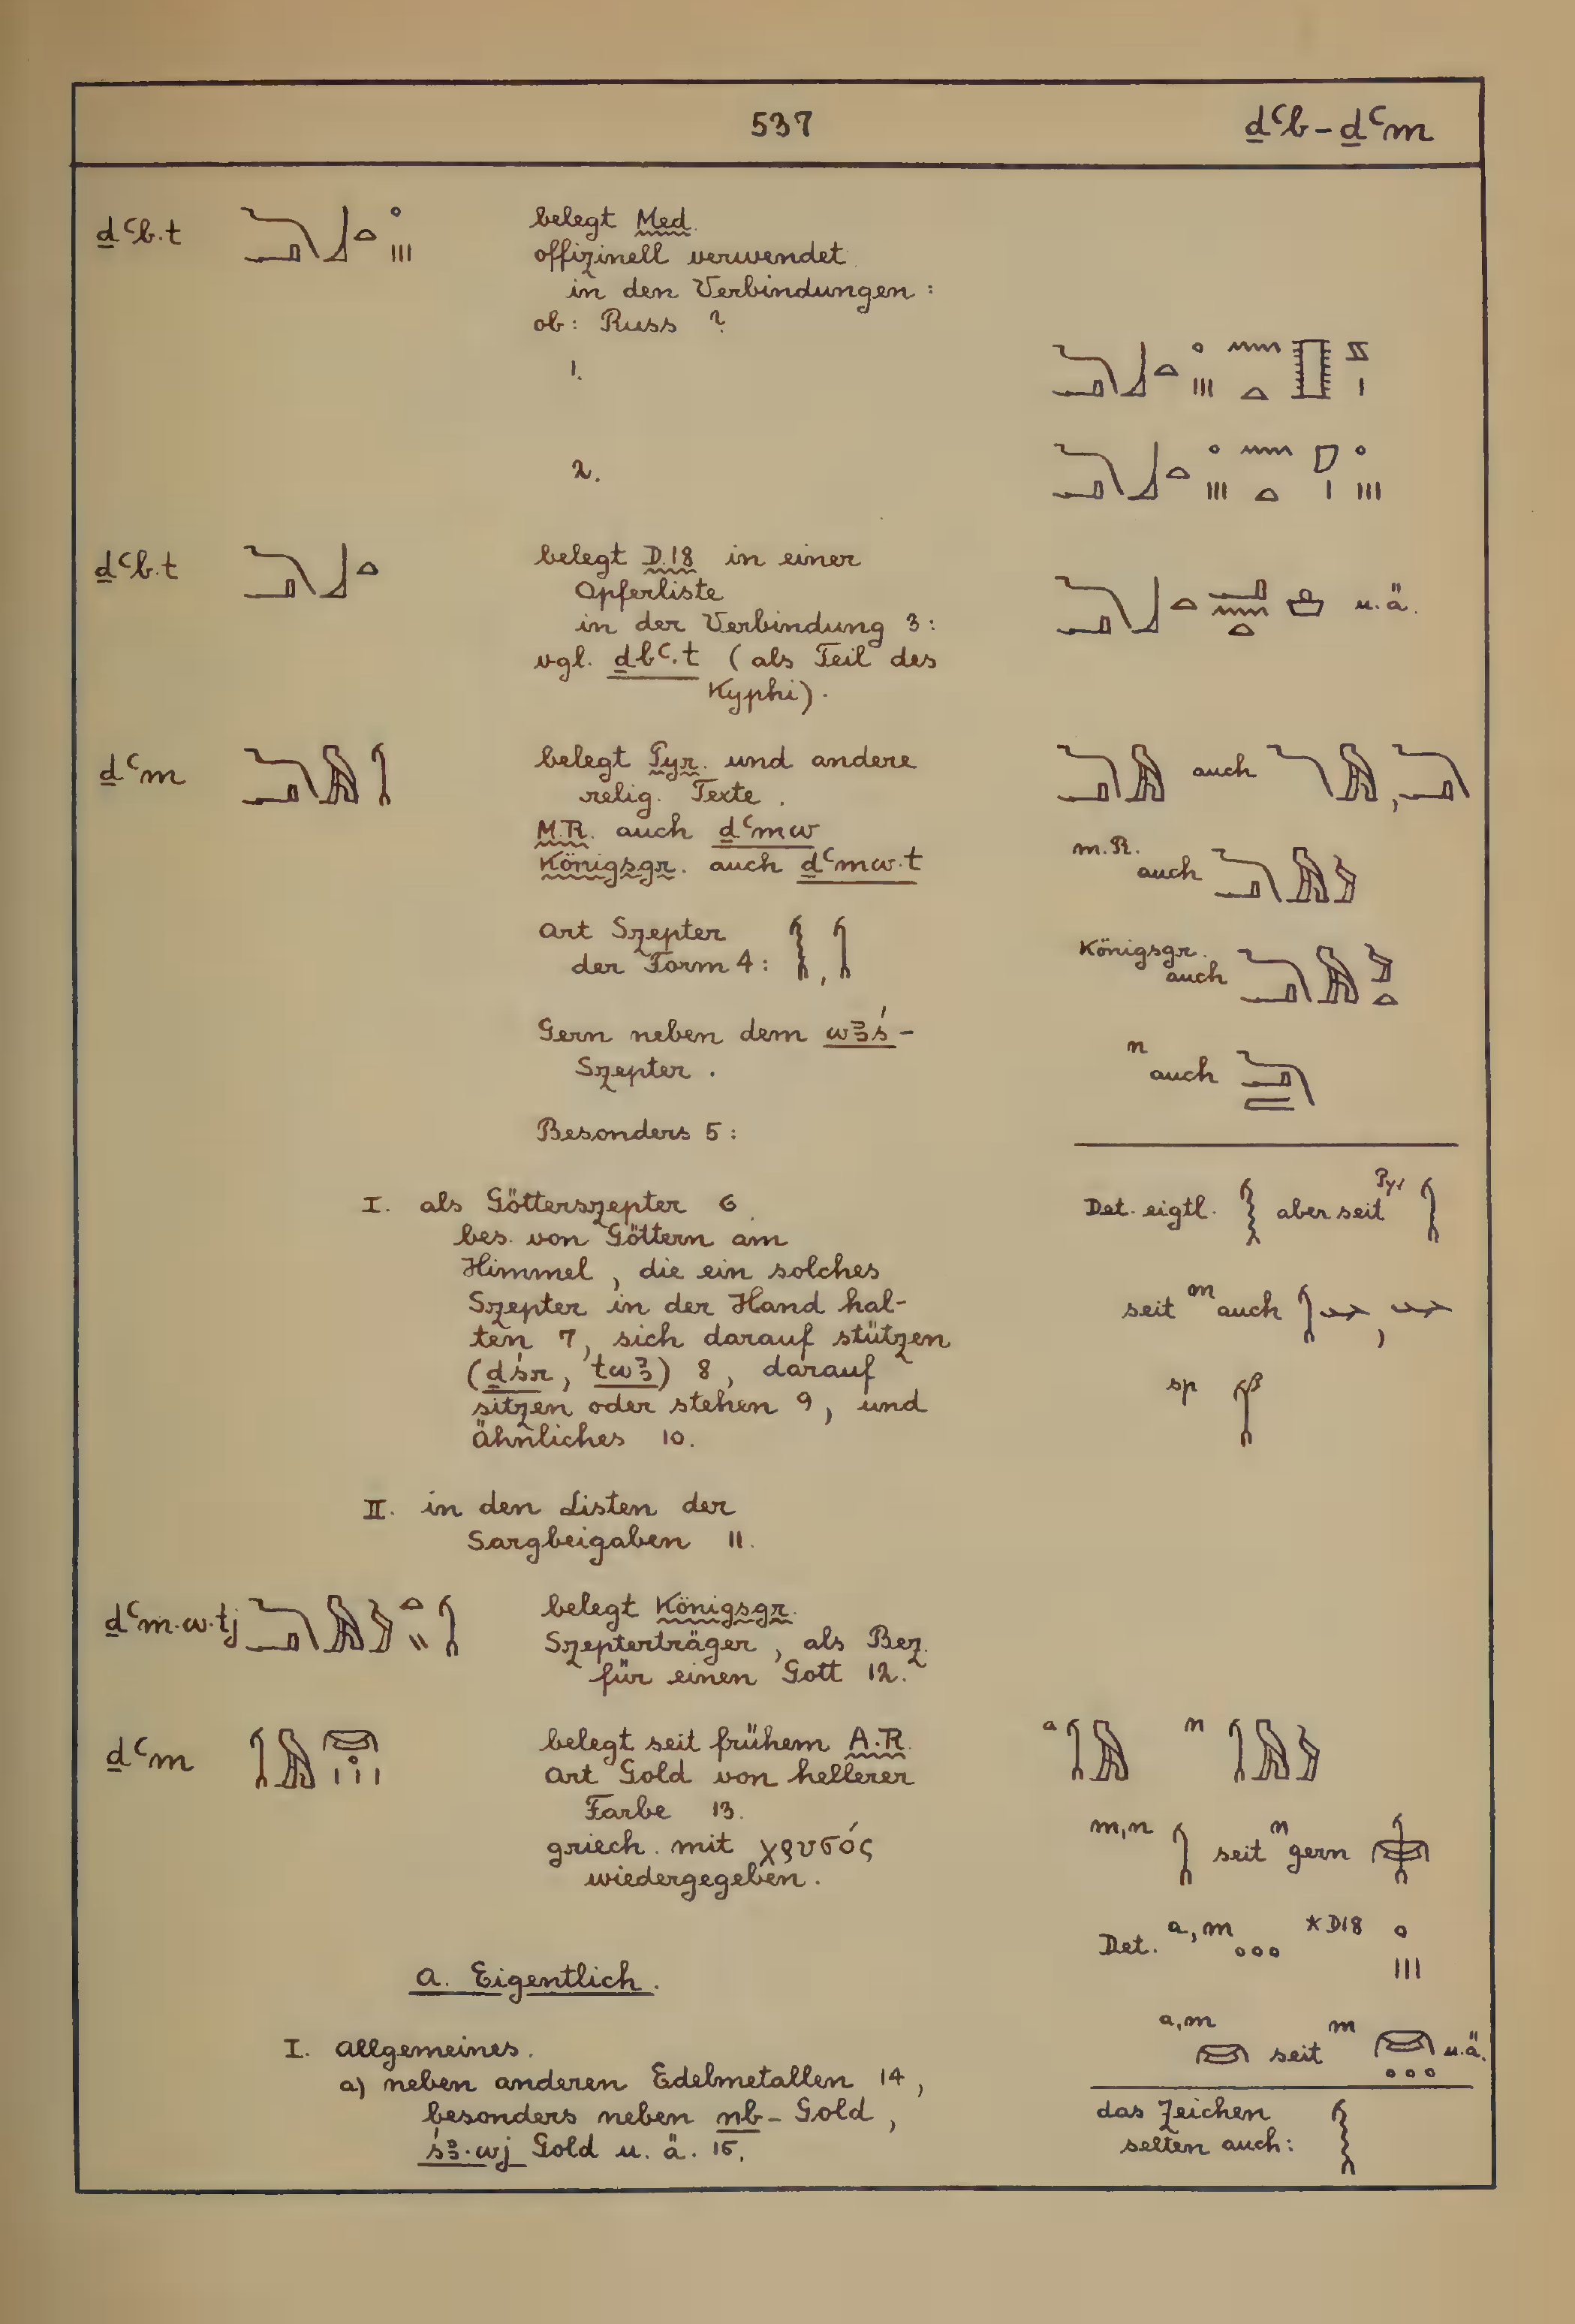 537
ḏꜥb – ḏꜥm
ḏꜥb.t
belegt Med.
offizinell verwendet
in den Verbindungen :
ob : Russ ?
1.
2.
ḏꜥb.t
belegt D.18 in einer
Opferliste
in der Verbindung 3 :
vgl. ḏbꜥ.t (als Teil des
Kyphi).
u.ä.
ḏꜥm
belegt Pyr. und andere
relig. Texte.
M.R. auch ḏꜥmw
Königsgr. auch ḏꜥmw.t
Art Szepter
der Form 4 : ,
Gern neben dem wꜣś –
Szepter.
Besonders 5 :
auch ,
m.R.
auch
Königsgr.
auch
n
auch
I. als Götterszepter 6
bes. von Göttern am
Himmel, die ein solches
Szepter in der Hand hal-
ten 7, sich darauf stützen
(ḏśr, twꜣ) 8, darauf
sitzen oder stehen 9, und
ähnliches 10.
II. in den Listen der
Sargbeigaben 11.
Det. eigtl. aber seit Pyr
seit m auch ,
sp
ḏꜥm.w.tj
belegt Königsgr.
Szepterträger, als Bez.
für einen Gott 12.
ḏꜥm
belegt seit frühem A.R.
Art Gold von hellerer
Farbe 13.
griech. mit χρυσός
wiedergegeben.
a n
m,n seit n gern
Det. a,m *D18
a,m seit m u.ä.
das Zeichen
selten auch :
A. Eigentlich.
I. Allgemeines.
a) neben anderen Edelmetallen 14,
besonders neben nb – Gold,
śꜣ.wj Gold u. ä. 15.